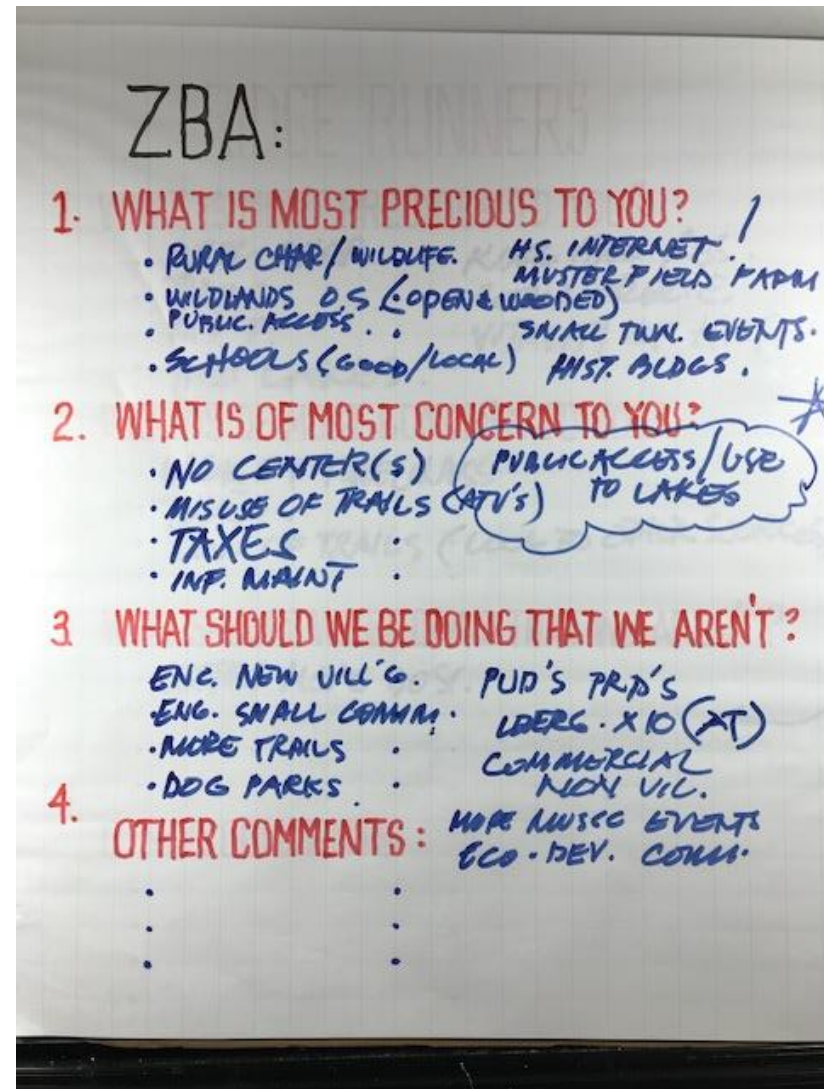 ZBA:
1. WHAT IS MOST PRECIOUS TO YOU?
• RURAL CHAR/WILDLIFE.
• WILDLANDS O.S (• OPEN & WOODED)
• PUBLIC. ACCESS. •
• SCHOOLS (GOOD/LOCAL)
HS. INTERNET!
MUSTER FIELD FARM
SMALL TWN. EVENTS.
HIST. BLDGS.
2. WHAT IS OF MOST CONCERN TO YOU?
• NO CENTER(S)
• MISUSE OF TRAILS (ATV'S)
• TAXES •
• INF. MAINT •
PUBLIC ACCESS/USE
TO LAKES
3 WHAT SHOULD WE BE DOING THAT WE AREN'T?
ENC. NEW VILL'G.
ENG. SMALL COMM.
• MORE TRAILS •
• DOG PARKS. •
PUD'S PRD'S
X 10
COMMERCIAL
NON VIL.
4. OTHER COMMENTS:
MORE MUSIC EVENTS
ECO. DEV. COMM.